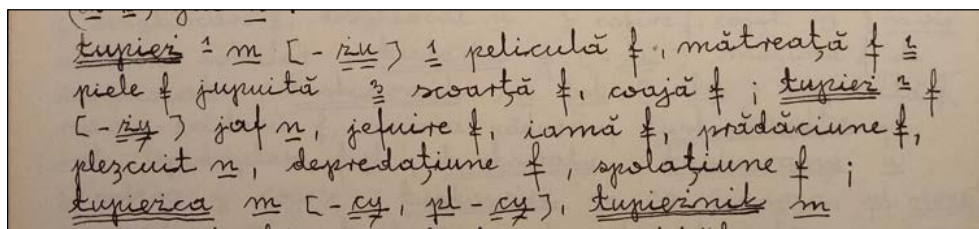 łupież ¹ m [-żu] 1 peliculă f, mătreaţă f 2
piele f jupuită 3 scoarţă f, coajă f ; łupież ² f
[-ży] jaf n, jefuire f, iamă f, prădăciune f,
pleşcuit n, depredaţiune f, spolaţiune f ;
łupieżca m [-cy, pl -cy], łupieżnik m